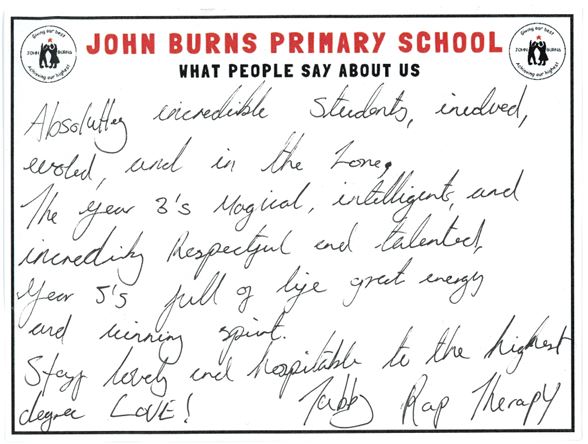 Giving our best
JOHN BURNS
Achieving our highest
JOHN BURNS PRIMARY SCHOOL
Giving our best
JOHN BURNS
Achieving our highest
WHAT PEOPLE SAY ABOUT US
incredible Students,
and in the Zone,
The Year 3's Magical, intelligent, and
Respectful and talented,
Year 5's full of life great energy
and winning spirit.
Staff lovely and hospitable to the highest
degree LOVE! Tabby Rap Therapy